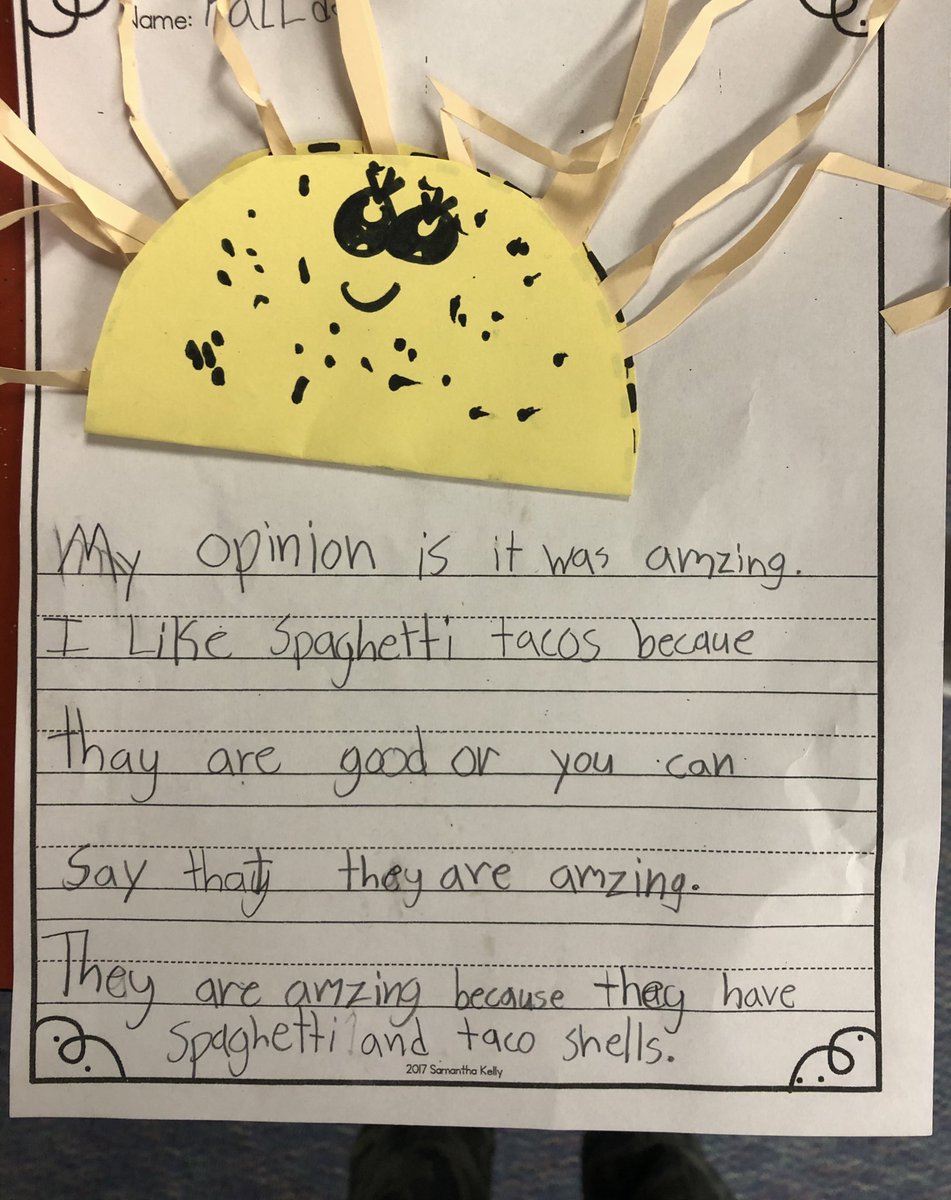 Name:
My opinion is it was amzing.
I Like Spaghetti tacos becaue
thay are good or you can
Say that they are amzing.
They are amzing because they have
spaghetti and taco shells.
2017 Samantha Kelly